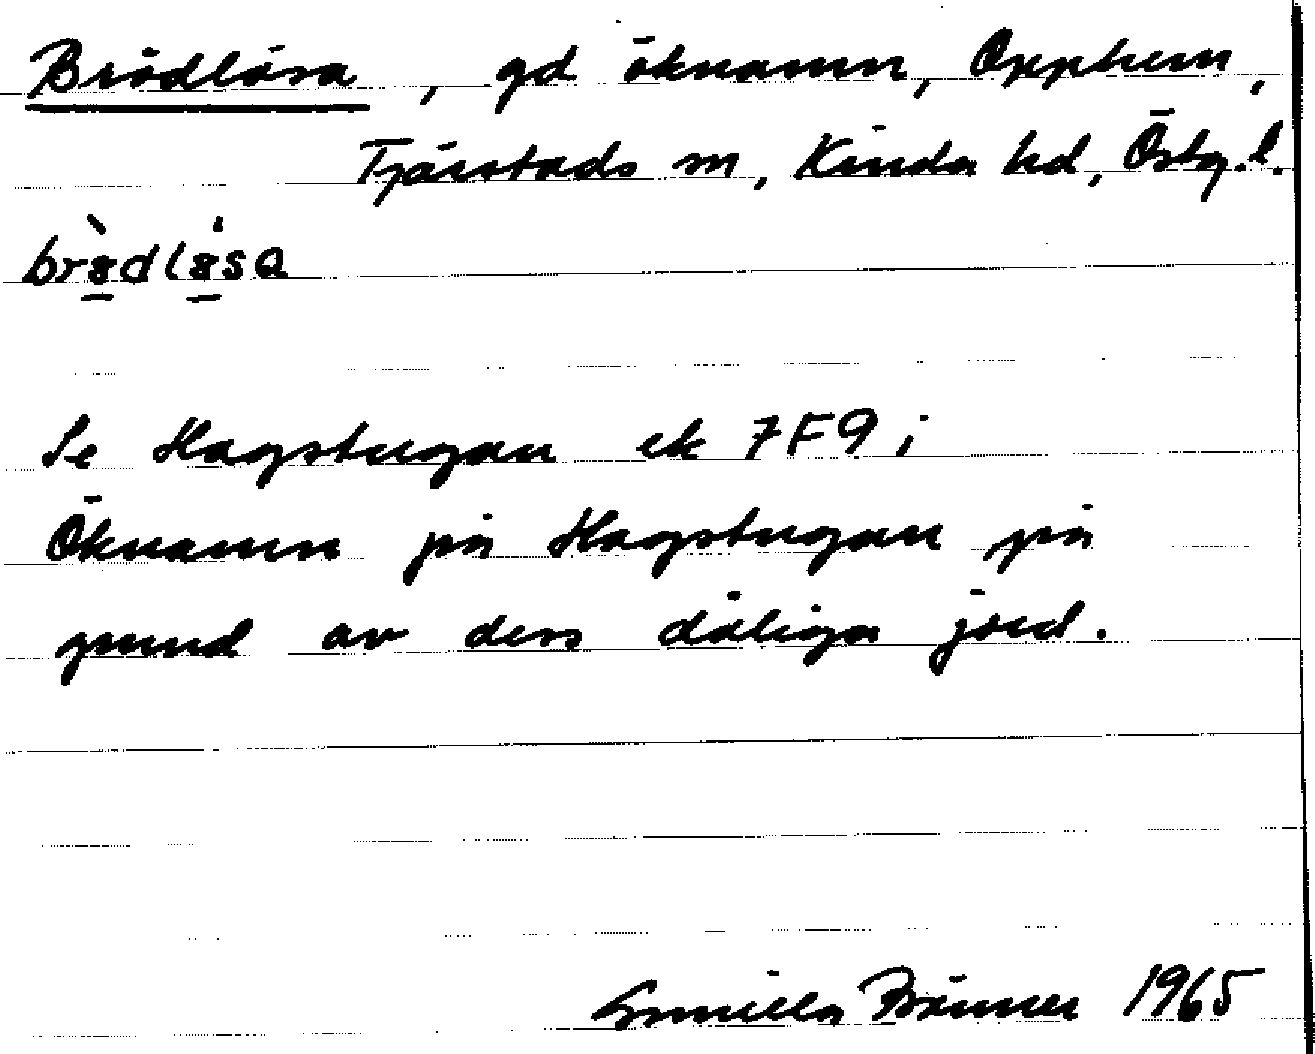 Brödlösa, gd öknamn, Opphem,
Tjärstads sn, Kinda hd, Östg. l.
brɵ̀dlɵ́sa
Se Hagstugan ek 7F9 i
Öknamn på Hagstugan på
grund av dess dåliga jord.
Gunilla 1965